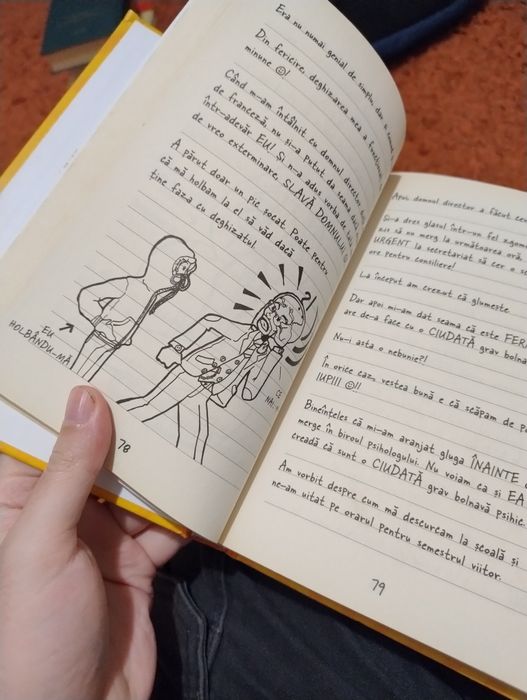 Era nu numai genial de simplu, dar
Din fericire, deghizarea mea a funcționat
minune ☺!
Când m-am întâlnit cu domnul director
de franceză, nu și-a putut da seama dacă
într-adevăr EU! Și n-a adus vorba de
de vreo exterminare, SLAVĂ DOMNULUI!
A părut doar un pic șocat. Poate pentru
că mă holbam la el să văd dacă
ține faza cu deghizatul.
EU
HOLBÂNDU-MĂ
78
Apoi domnul director a făcut
Și-a dres glasul într-un fel
zis să nu merg la următoarea oră,
URGENT la secretariat să cer o
ore pentru consiliere!
La început am crezut că glumește
Dar apoi mi-am dat seama că este
are de-a face cu o CIUDATĂ grav
Nu-i asta o nebunie?!
În orice caz, vestea bună e că scăpam de
IUPIII ☺!!
Bineînțeles că mi-am aranjat gluga ÎNAINTE
merge în biroul psihologului. Nu voiam ca și EA
creadă că sunt o CIUDATĂ grav bolnavă psihic.
Am vorbit despre cum mă descurcam la școală și
ne-am uitat pe orarul pentru semestrul viitor.
79